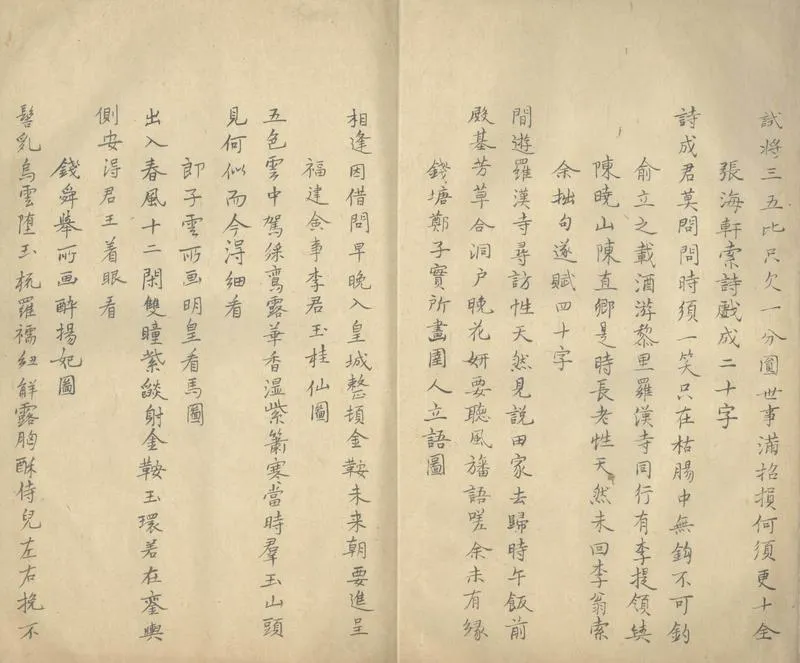 試將三五比只欠一分圓世事滿招損何須更十全
張海軒索詩戲成二十字
詩成君莫問問時須一笑只在枯腸中無鈎不可釣
俞立之載酒游黎里羅漢寺同行有李提領缜
陳曉山陳直卿是時長老性天然未回李翁索
余拙句遂賦四十字
間遊羅漢寺尋訪性天然見說田家去歸時午飯前
殿基芳草合洞戶晚花妍要聽風旛語嗟余未有緣
錢塘鄭子實所畫圉人立語圖
相逢因借問早晚入皇城整頓金鞍未来朝要進呈
福建僉事李君玉桂仙圖
五色雲中駕綵鸞露華香湿紫簫寒當時羣玉山頭
見何似而今得細看
郎子雲所画明皇看馬圖
出入春風十二閑雙瞳紫燄射金鞍玉環若在鑾輿
側安得君王着眼看
錢舜舉所画醉楊妃圖
髻乳烏雲堕玉梳羅襦紐解露胸酥侍兒左右挽不